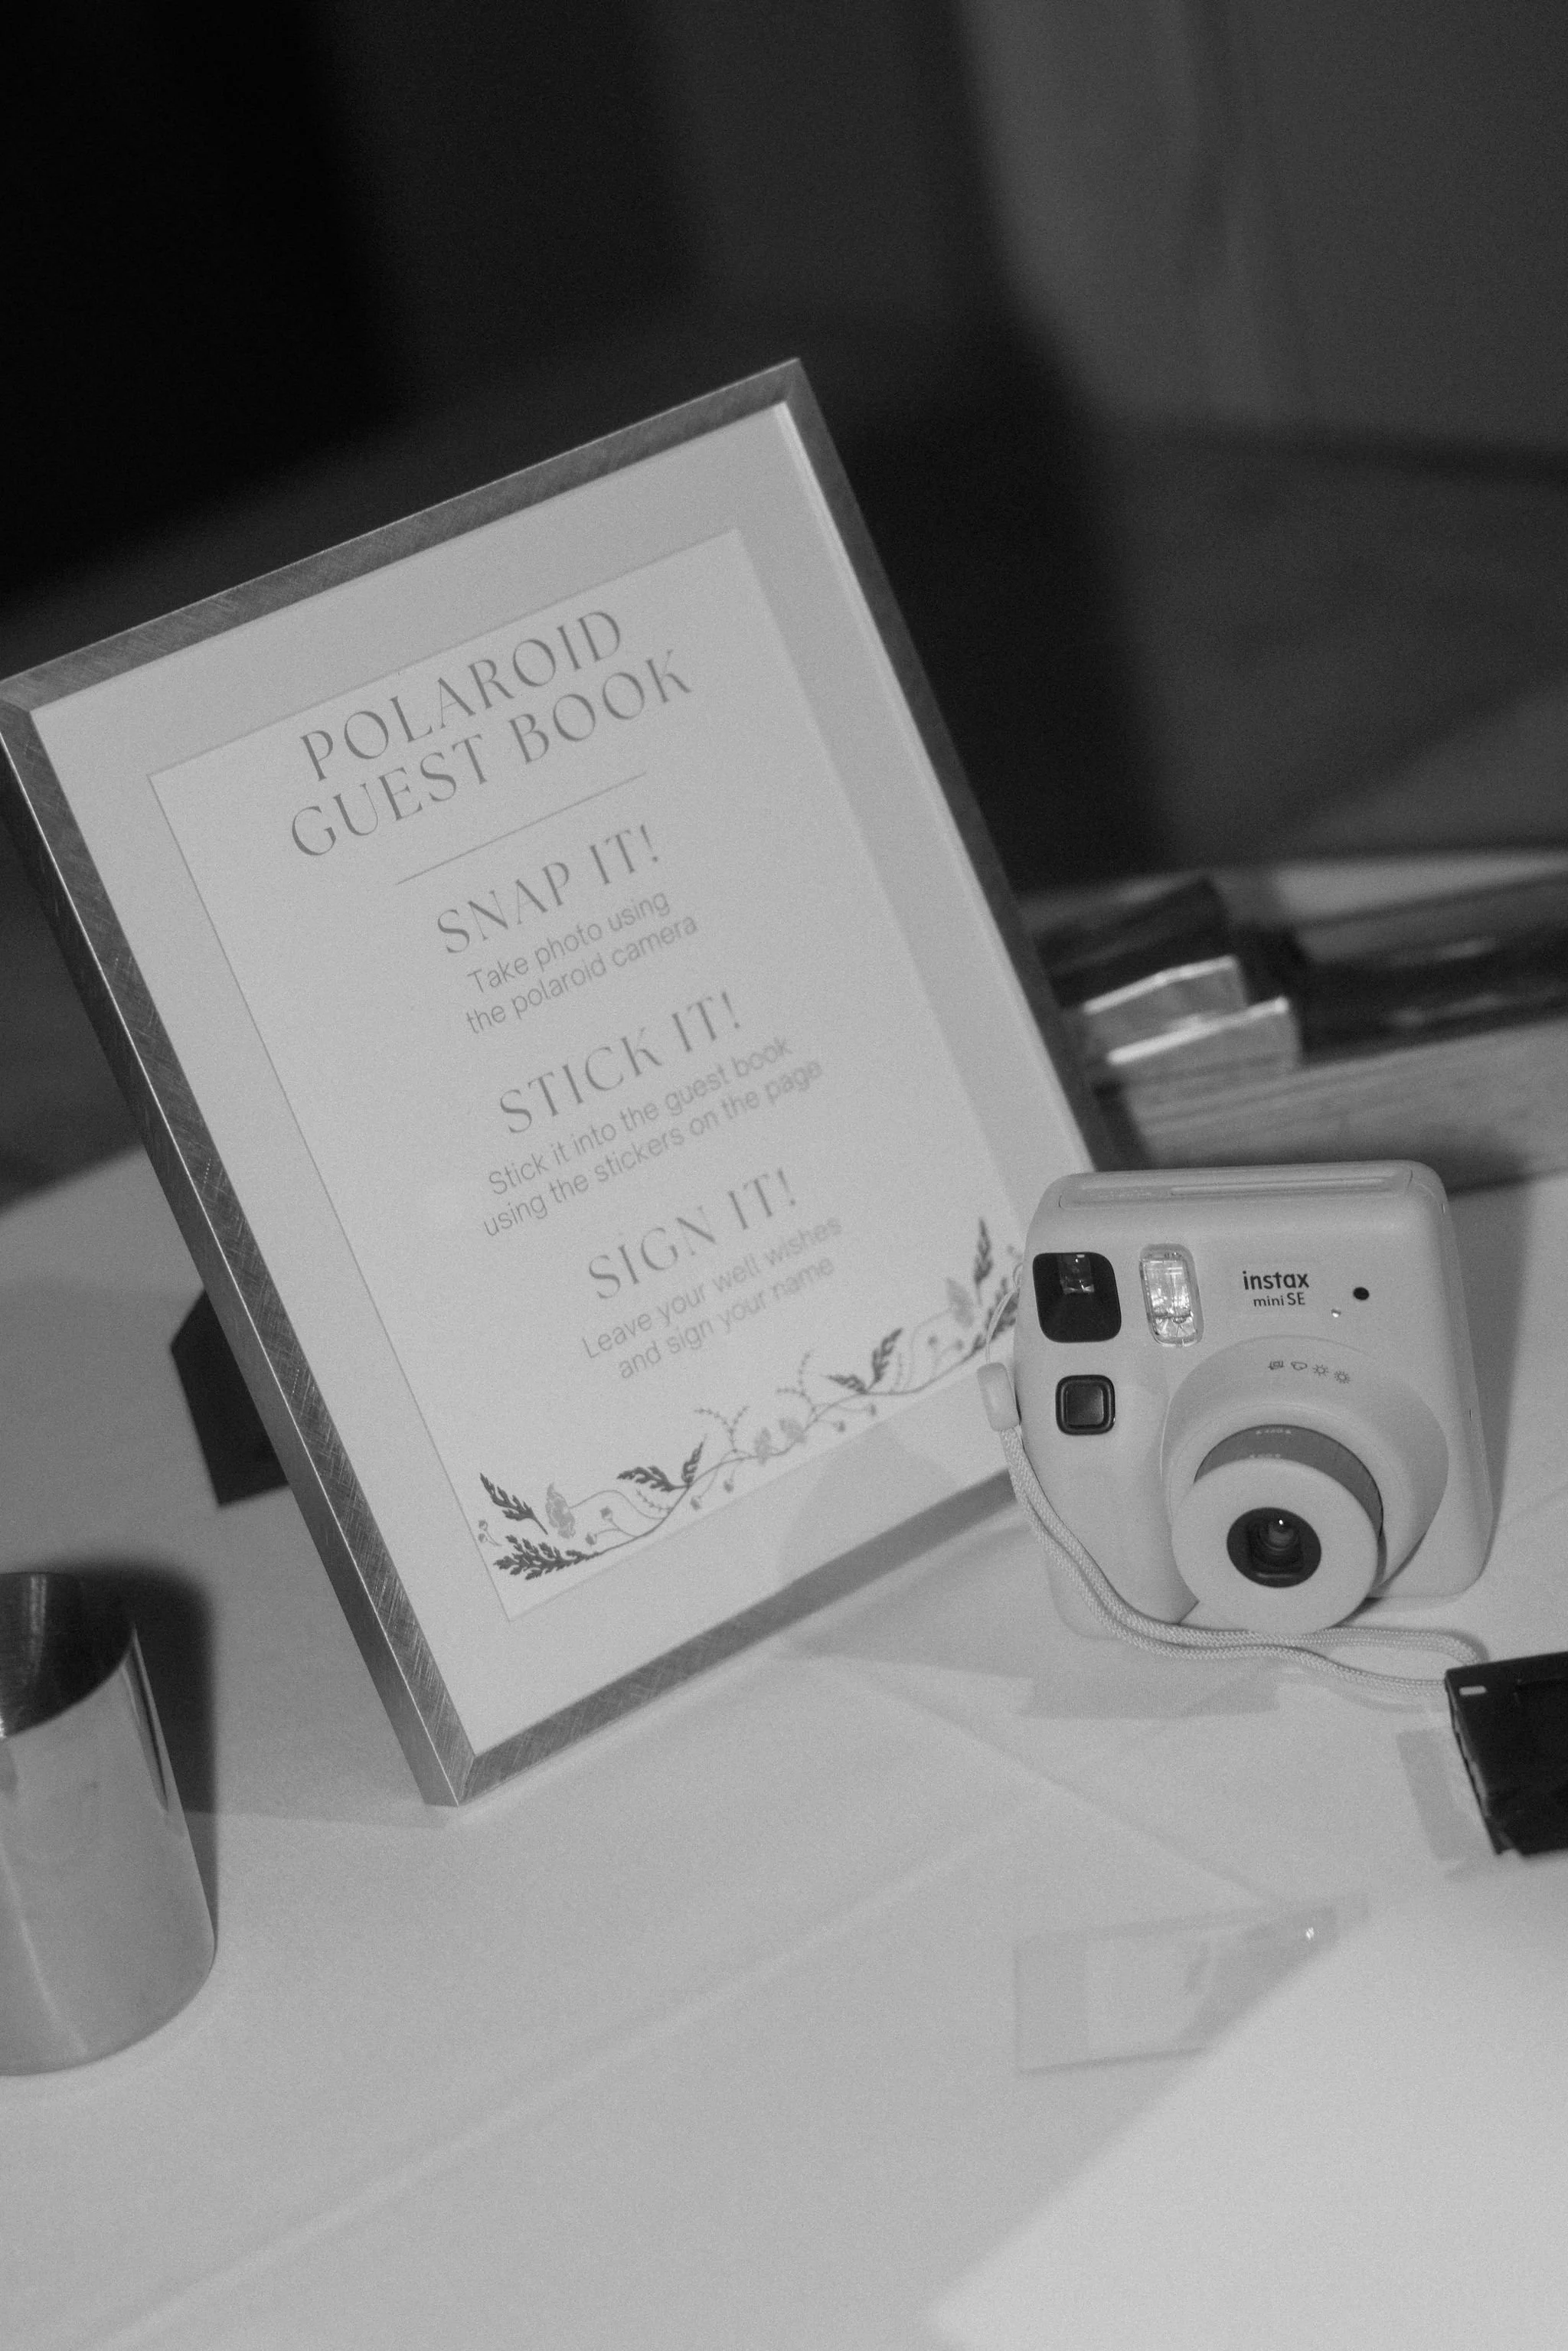 POLAROID
GUEST BOOK
SNAP IT!
Take photo using
the polaroid camera
STICK IT!
Stick it into the guest book
using the stickers on the page
SIGN IT!
Leave your well wishes
and sign your name
instax
mini SE